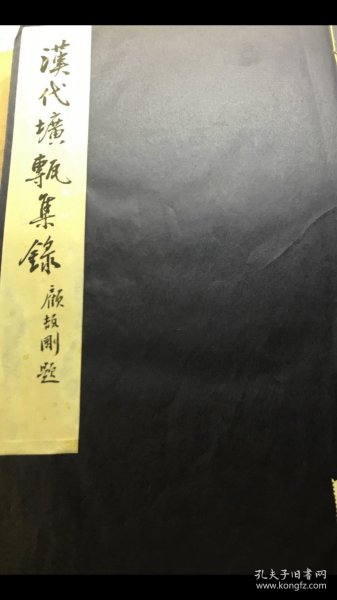 漢代壙甎集錄
顧頡剛題
孔夫子旧书网
www.kongfz.com